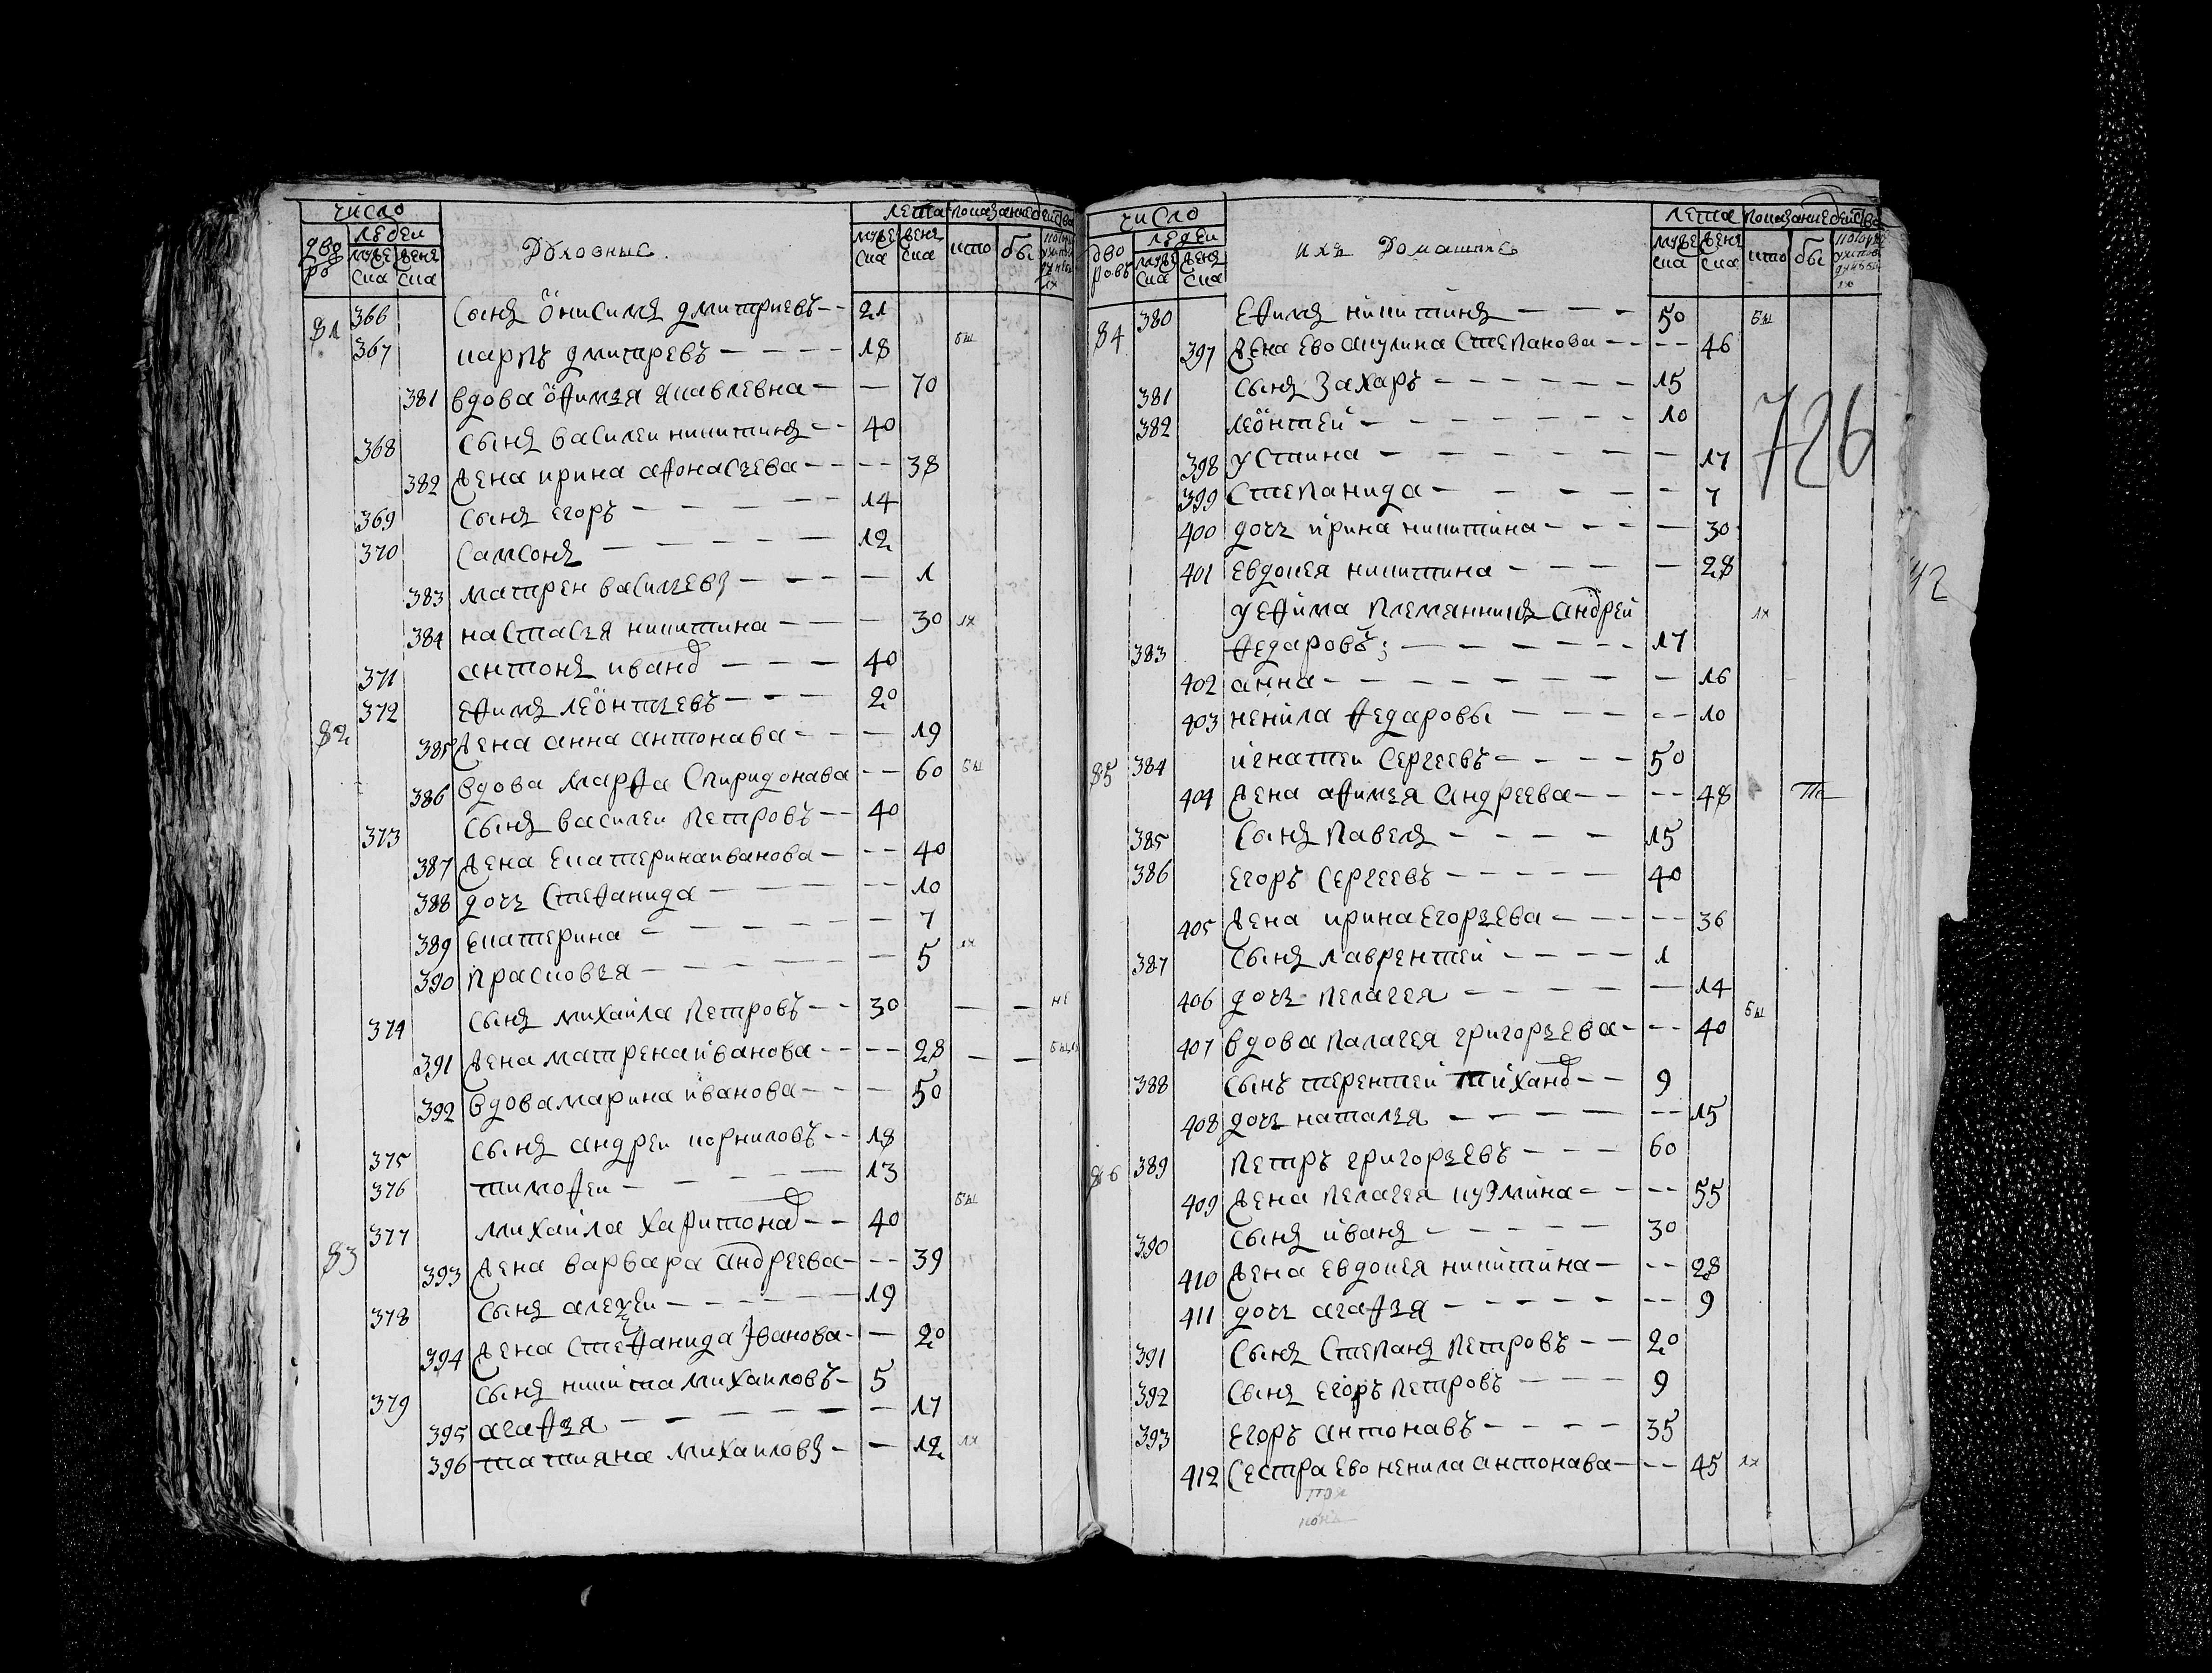 число
лета показание действа
дво ро
людеи
муже ска
женс ска
Духовные
муже ска
женс ска
кто
бы
81 366 сынъ онисимъ дмитриевъ 21
367 карпъ дмитревъ 18 бы
381 вдова офимья яковлевна 70
368 сынъ василеи никитинъ 40
382 жена ирина афонасьева 38
369 сынъ егоръ 14
370 самсонъ 12
383 матрен васильев 1
384 настасья никитина 30 1х
371 антонъ иванов 40
82 372 ефимъ леонтьевъ 20
385 жена анна антонава 19
386 вдова марфа спиридонава 60 бы
373 сынъ василеи петровъ 40
387 жена екатерина иванова 40
388 дочь стефанида 10
389 екатерина 7
390 прасковья 5 1х
374 сынъ михаила петровъ 30 не
391 жена матрена иванова 28
392 вдова марина иванова 50
375 сынъ андреи корниловъ 18
376 тимофеи 13
83 377 михаила харитонов 40 бы
393 жена варвара андреева 39
378 сынъ алекѣи 19
394 жена стефанида иванова 20
379 сынъ никита михаиловъ 5
395 агафья 17
396 татияна михаилов 12 1х
число
лета показание действа
дво ровъ
людеи
муже ска
женс ска
ихъ Домашние
муже ска
женс ска
кто
бы
84 380 ефимъ никитинъ 50 бы
397 жена ево акулина степанова 46
381 сынъ захаръ 15
382 леонтеи 10
726
398 устина 17
399 степанида 7
400 дочь ирина никитина 30
401 евдокея никитина 28
42
у ефима племянникъ андреи 1х
383 федаровъ 17
402 анна 16
403 ненила федаровы 10
85 384 игнатеи сергеевъ 50
404 жена афимья андреева 48
385 сынъ павелъ 15
386 егоръ сергеевъ 40
405 жена ирина егорьева 36
387 сынъ лаврентеи 1
406 дочь пелагея 14
407 вдова палагея григорьева 40 бы
388 сынъ терентеи тиханов 9
408 дочь наталья 15
86 389 петръ григорьевъ 60
409 жена пелагея кузмина 55
390 сынъ иванъ 30
410 жена евдокея никитина 28
411 дочь агафья 9
391 сынъ степанъ петровъ 20
392 сынъ егоръ петровъ 9
393 егоръ антонавъ 35
412 сестра ево ненила антонава 45 1х